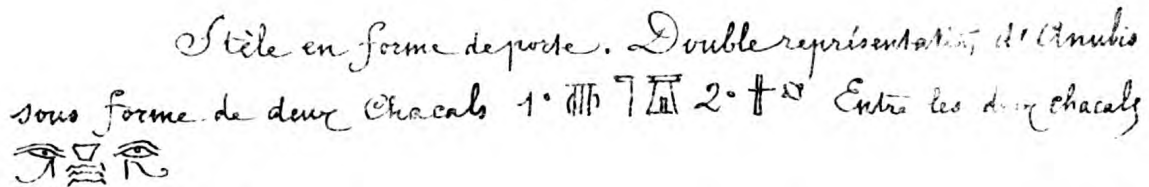 Stèle en forme de porte. Double représentation d'Anubis
sous forme de deux Chacals 1° 𓏃 𓊹 𓉱 2° 𓏶 Entre les deux chacals
𓂀 𓈗 𓂀